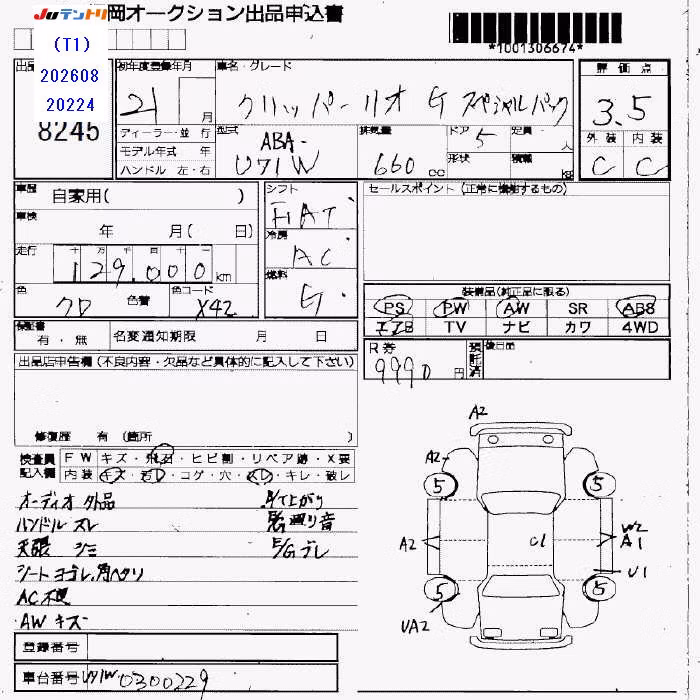 JUテントリ
岡オークション出品申込書
(T1)
202608
20224
*1001306674*
出品
8245
初年度登録年月
21 月
車名・グレード
クリッパーリオ G スペシャルパック
評価点
3.5
外装 内装
C C
ディーラー・並 行
モデル年式 年
ハンドル 左・右
型式
ABA-
U71W
排気量
660 cc
ドア 5
形状
定員 人
積載 kg
車歴 自家用( )
車検 年 月( 日)
走行 十 万 千 百 十 一
129,000 km
色 クロ 色替
色コード X42
シフト FIAT
冷房 AC
燃料 G
セールスポイント (正常に機能するもの)
装備品(純正品に限る)
PS PW AW SR ABS
エアB TV ナビ カワ 4WD
保証書 有・無
名変通知期限 月 日
R券 9990 円
預託済
後日品
出品店申告欄 (不良内容・欠品など具体的に記入して下さい)
修復歴 有 (箇所 )
検査員記入欄
FW キズ・飛石・ヒビ割・リペア跡・X要
内装 キズ・汚レ・コゲ・穴・スレ・キレ・破レ
オーディオ外品
ハンドル スレ
天張 シミ
シートヨゴレ、角ヘタリ
AC不良
AW キズ
下廻り音
E/Gブレ
A2
A2
5
5
A2
U1
W2
A1
U1
5
5
UA2
登録番号
車台番号 U71W 0300229